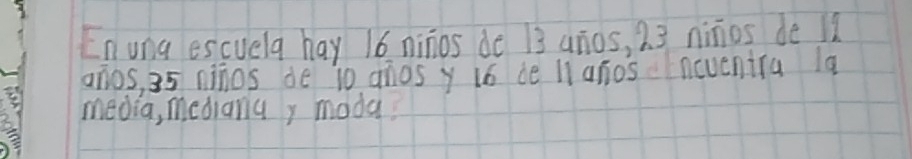 En una escuela hay 16 niños de 13 años, 23 niños de 12
años, 35 niños de 10 años y 16 de 11 años encuentra la
media, mediana y moda?